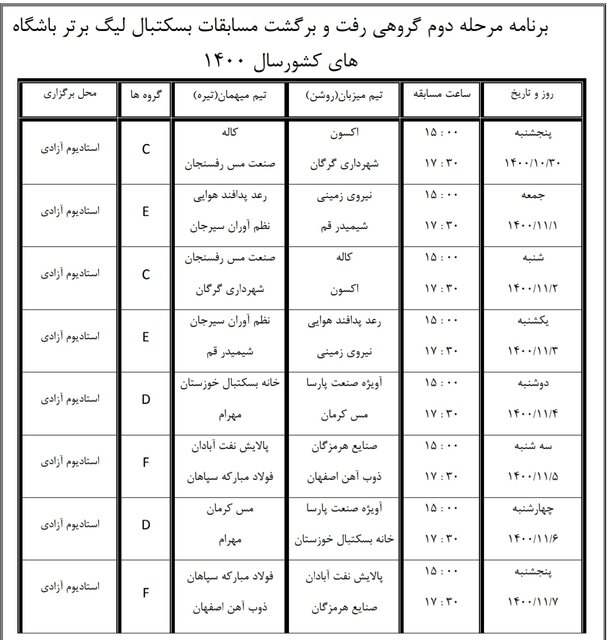 برنامه مرحله دوم گروهی رفت و برگشت مسابقات بسکتبال لیگ برتر باشگاه
های کشورسال ۱۴۰۰
روز و تاریخ ساعت مسابقه تیم میزبان(روشن) تیم میهمان(تیره) گروه ها محل برگزاری
پنجشنبه ۱۵:۰۰ اکسون کاله C استادیوم آزادی
۱۴۰۰/۱۰/۳۰ ۱۷:۳۰ شهرداری گرگان صنعت مس رفسنجان
جمعه ۱۵:۰۰ نیروی زمینی رعد پدافند هوایی E استادیوم آزادی
۱۴۰۰/۱۱/۱ ۱۷:۳۰ شیمیدر قم نظم آوران سیرجان
شنبه ۱۵:۰۰ کاله صنعت مس رفسنجان C استادیوم آزادی
۱۴۰۰/۱۱/۲ ۱۷:۳۰ اکسون شهرداری گرگان
یکشنبه ۱۵:۰۰ رعد پدافند هوایی نظم آوران سیرجان E استادیوم آزادی
۱۴۰۰/۱۱/۳ ۱۷:۳۰ نیروی زمینی شیمیدر قم
دوشنبه ۱۵:۰۰ آویژه صنعت پارسا خانه بسکتبال خوزستان D استادیوم آزادی
۱۴۰۰/۱۱/۴ ۱۷:۳۰ مس کرمان مهرام
سه شنبه ۱۵:۰۰ صنایع هرمزگان پالایش نفت آبادان F استادیوم آزادی
۱۴۰۰/۱۱/۵ ۱۷:۳۰ ذوب آهن اصفهان فولاد مبارکه سپاهان
چهارشنبه ۱۵:۰۰ آویژه صنعت پارسا مس کرمان D استادیوم آزادی
۱۴۰۰/۱۱/۶ ۱۷:۳۰ خانه بسکتبال خوزستان مهرام
پنجشنبه ۱۵:۰۰ پالایش نفت آبادان فولاد مبارکه سپاهان F استادیوم آزادی
۱۴۰۰/۱۱/۷ ۱۷:۳۰ صنایع هرمزگان ذوب آهن اصفهان